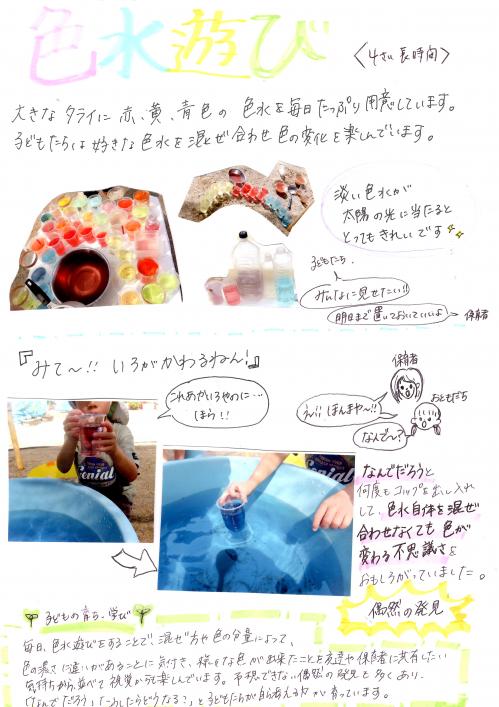 色水遊び
〈4さい長時間〉
大きなタライに赤、黄、青色の 色水を毎日たっぷり用意しています。
子どもたちは好きな色水を混ぜ合わせ色の変化を楽しんでいます。
淡い色水が
太陽の光に当たると
とってもきれいです
子どもたち
みんなに見せたい!!
明日まで置いておいていいよ
保育者
『みて〜!! いろがかわるねん!』
これあかいろやのに…
ほら!!
保育者
えぇ!! ほんまや〜!!
おともだち
なんで〜?
enial
なんでだろうと
何度もコップを出し入れ
して、色水自体を混ぜ
合わせなくても色が
変わる不思議さを
おもしろがっていました。
偶然の発見
子どもの育ち・学び
毎日、色水遊びをすることで、混ぜ方や色の分量によって、
色の濃さに違いがあることに気付き、様々な色が出来たことを友達や保育者に共有したい
気持ちから並べて視覚からも楽しんでいます。予想できない偶然の発見も多くあり、
「なんでだろう」「〜したらどうなる?」と子どもたちが自ら考える力が育っています。